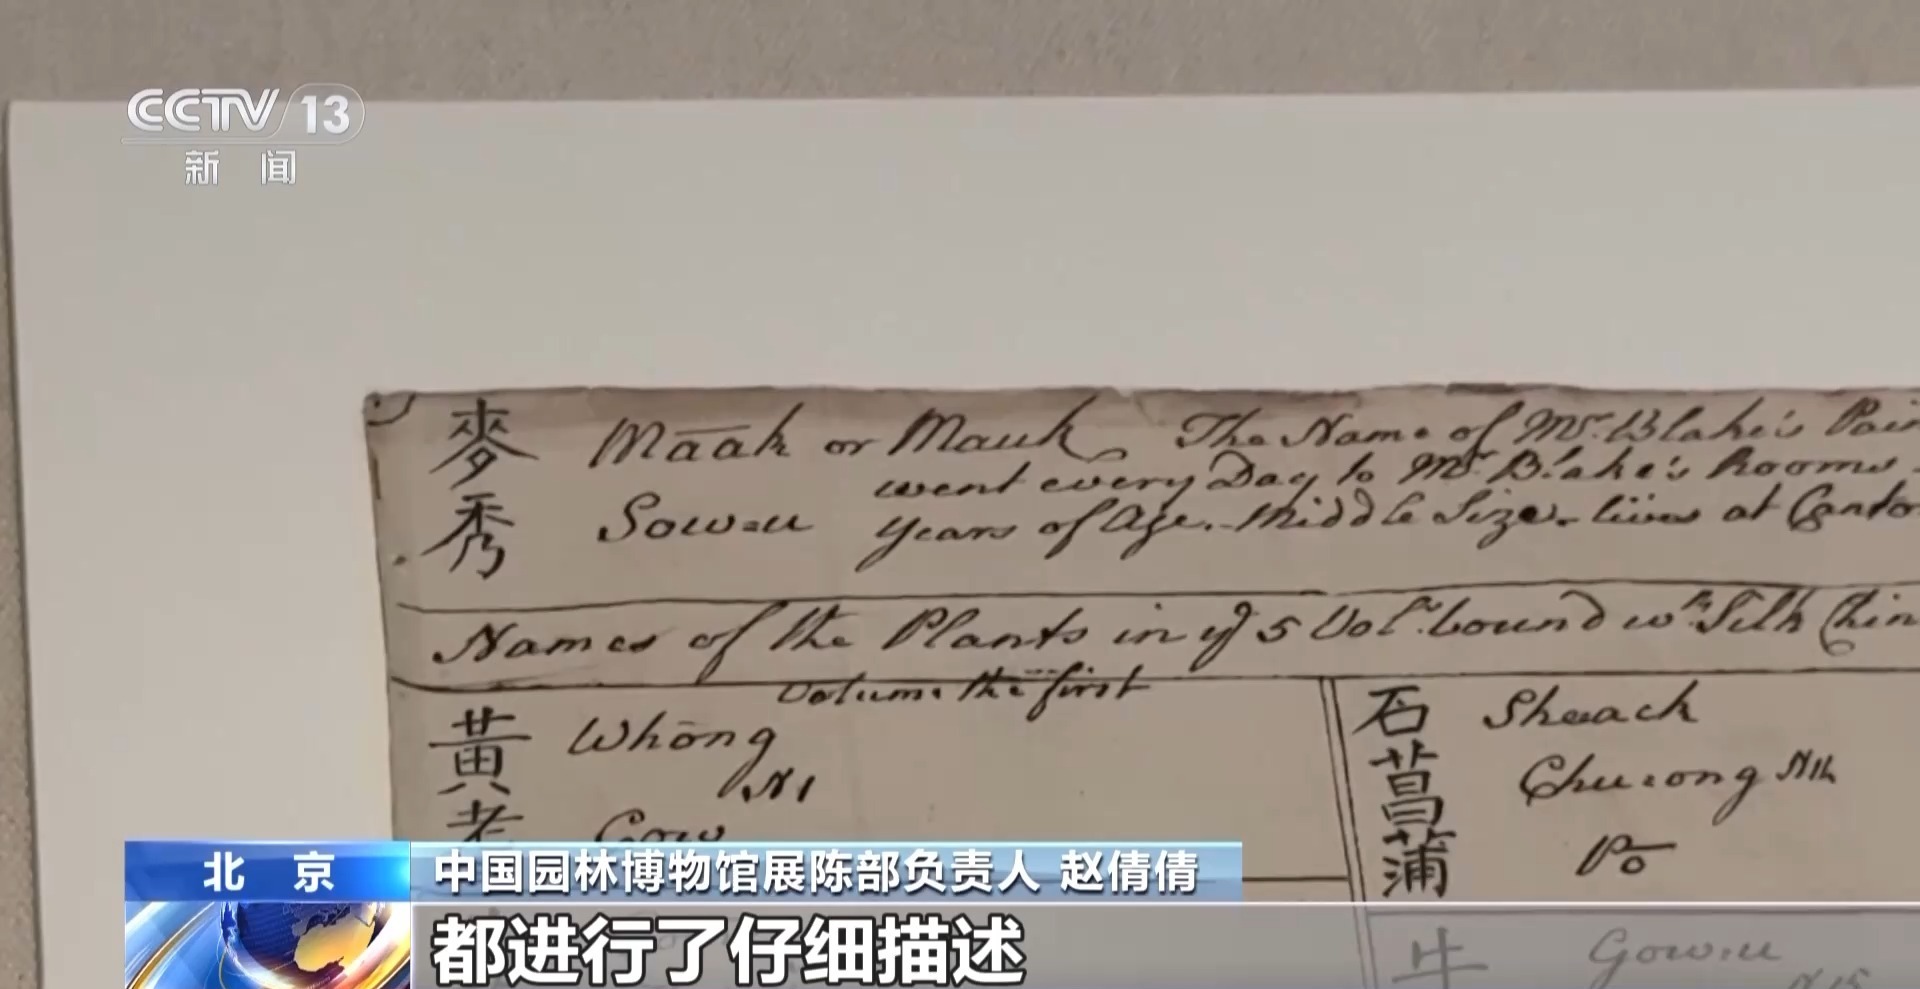 CCTV 13
新闻
麥 Māak or Mauk The Name of Mr. Blake's Pain
went every Day to Mr. Blake's Rooms
秀 Sow=u years of Age. Middle Size. lives at Canto
Names of the Plants in ye 5 Vols. bound wth. Silk Chin
Volume the first
黃 Whōng
N1
老 Gow
石 Sheack
菖 Chu=ong N14
蒲 Po
牛 Gow=u
N15
北京
中国园林博物馆展陈部负责人 赵倩倩
都进行了仔细描述